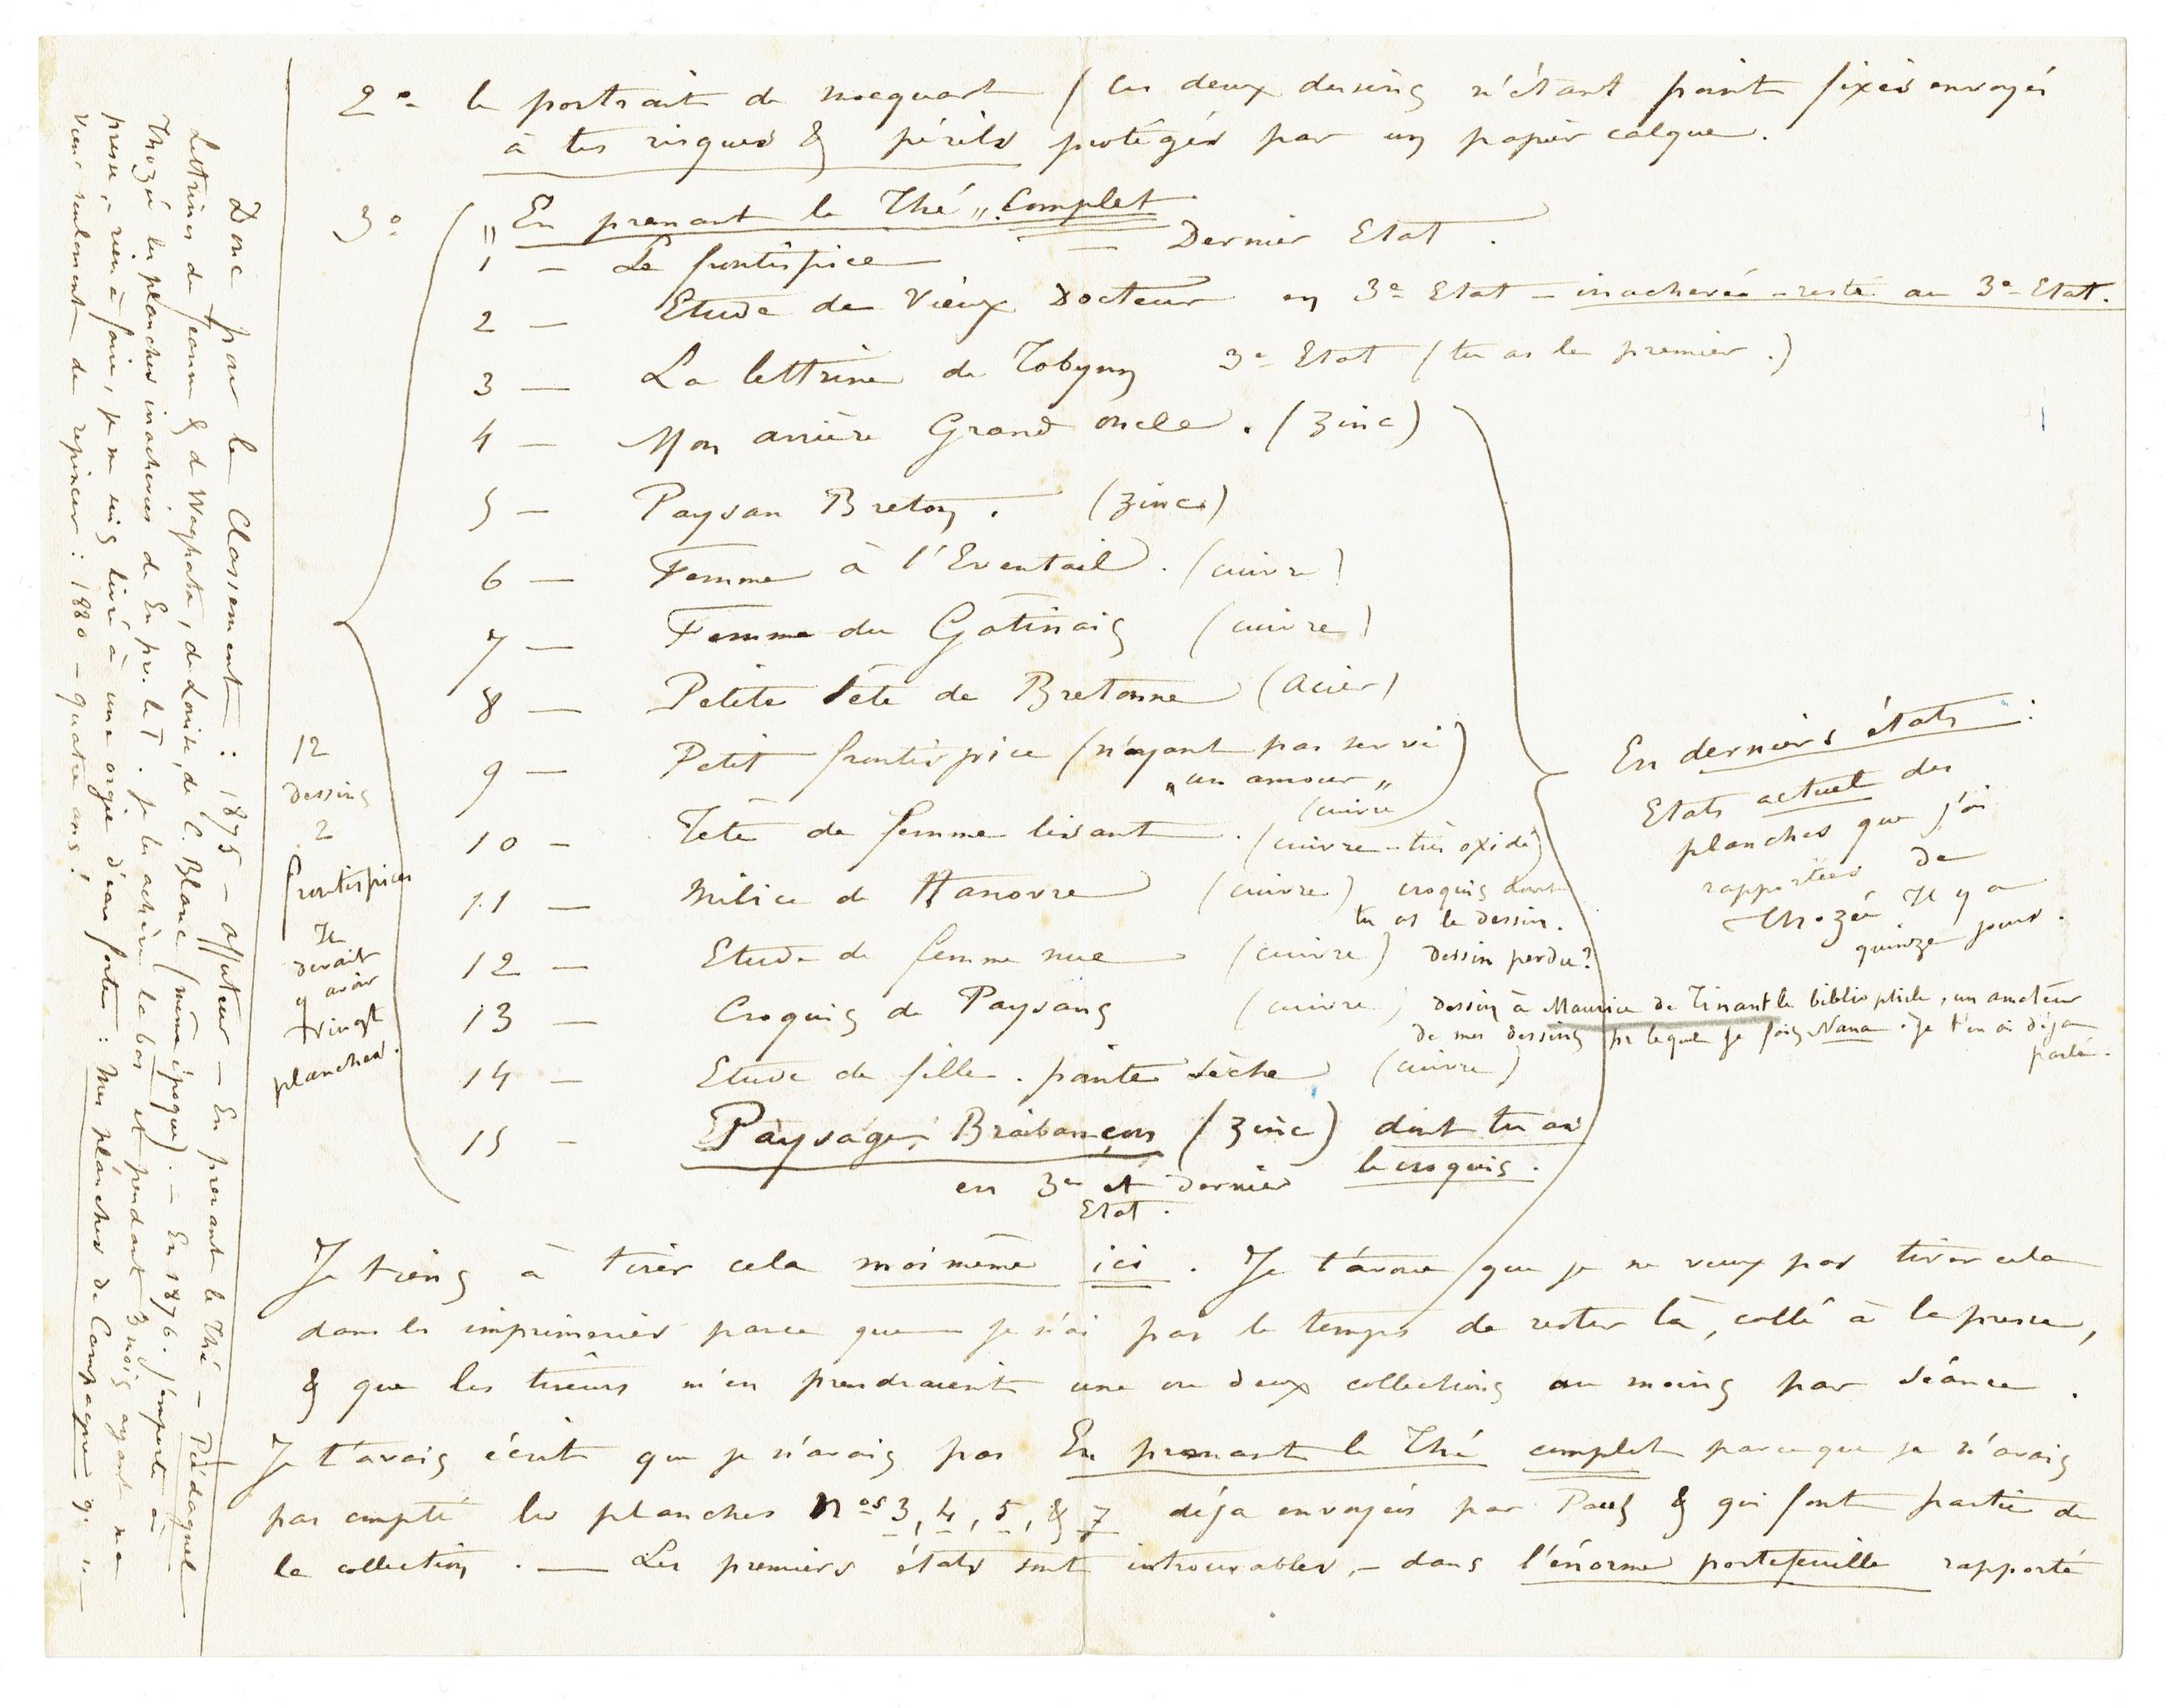 2º le portrait de Nocquart (ces deux dessins n'étant point fixés envoyés
à tes risques & périls protégés par un papier calque.
3º „En prenant le Thé„ Complet
1 — Le frontispice — Dernier Etat.
2 — Etude de Vieux Docteur en 3e Etat – inachevée – resté au 3e Etat.
3 — La lettrine de Tobynn 3e Etat (tu as le premier.)
4 — Mon arrière Grand oncle. (zinc)
5 — Paysan Breton. (zinc)
6 — Femme à l'Eventail. (cuivre)
7 — Femme du Gatinais (cuivre)
8 — Petite Tête de Bretonne (Acier)
9 — Petit frontispice (n'ayant pas servi)
„un amour„
(cuivre
10 – Tête de femme lisant. (cuivre – très oxidé)
11 — Milice de Hanovre (cuivre) croquis dont
tu as le dessin.
12 — Etude de femme nue (cuivre) dessin perdu?
13 — Croquis de Paysans (cuivre) dessin à Maurice de Tinant le bibliophile, un amateur
de mes dessins pr lequel je fais Nana. Je t'en ai déja
parlé.
14 — Etude de fille. pointe sèche (cuivre)
15 – Paysage Brabançon (zinc) dont tu as
le croquis.
en 3e et dernier
Etat.
12
dessins
2
frontispices
Il
devait
y avoir
vingt
planches.
En derniers états :
Etats actuel des
planches que j'ai
rapportées de
Thozée Il y a
quinze jours.
Je tiens à tirer cela moi même ici. Je t'avoue que je ne veux pas tirer cela
dans les imprimeries parce que je n'ai pas le temps de rester là, collé à la presse,
& que les tireurs m'en prendraient une ou deux collections au moins par séance.
Je t'avais écrit que je n'avais pas En prenant le Thé complet parce que je n'avais
pas compté les planches Nos 3, 4, 5, & 7 déja envoyés par Pauls & qui font partie de
la collection. — Les premiers états sont introuvables, – dans l'énorme portefeuille rapporté
Donc pour le Classement : 1875 – Affuteur – En prenant le Thé – Pédagnel
Lettrines de femme & de Waghata, de Louise, de C. Blanc (même époque). – En 1876. j'emporte à
Thozée les planches inachevées de En pr. le T. je les achève là bas et pendant 3 mois ayant ma
presse, & rien à faire, je me suis livré à une orgie d'eau fortes : Mes planches de Campagne q.
vient seulement de repincer : 1880 – quatre ans!